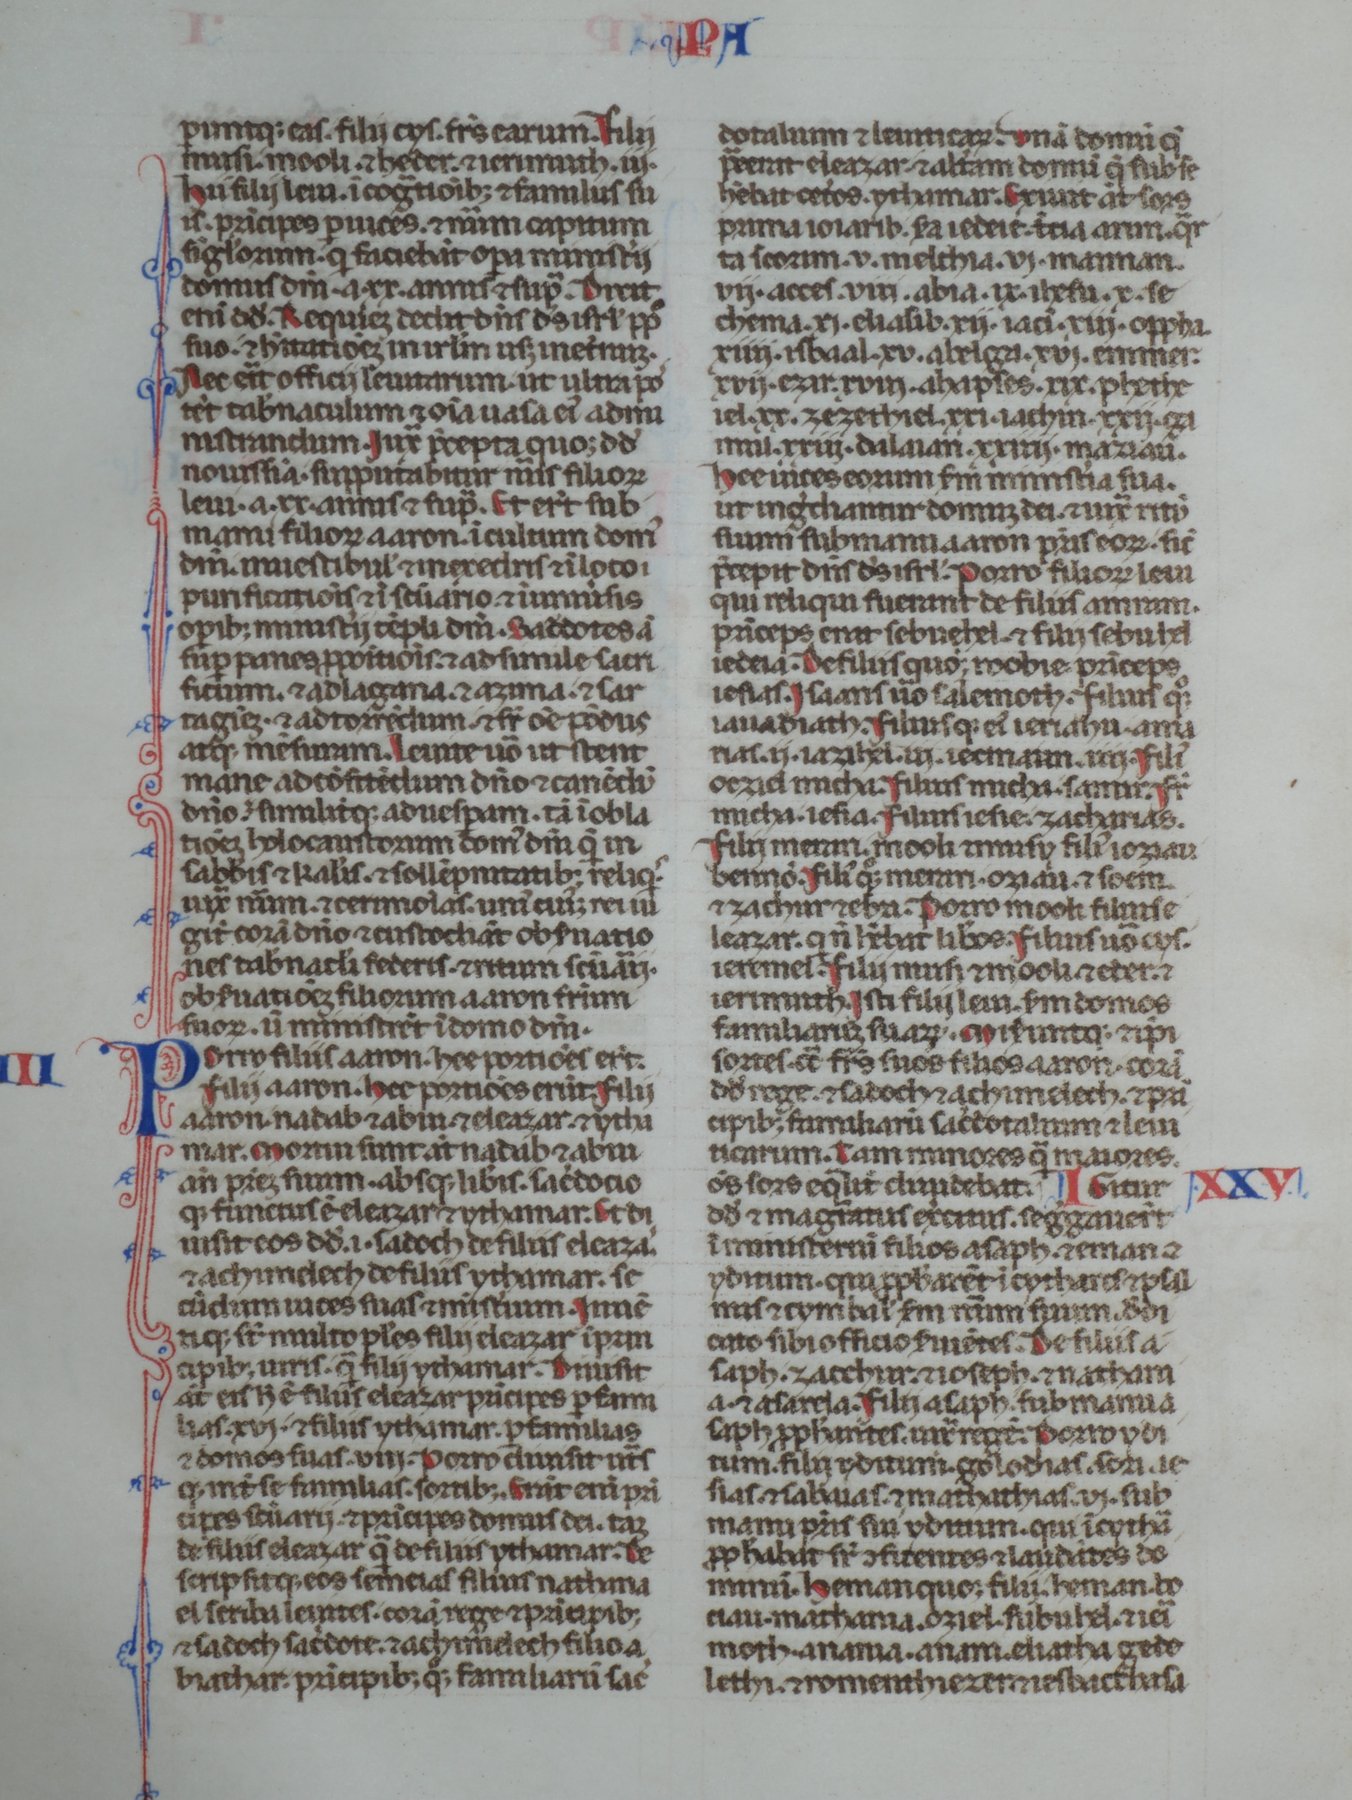 PA
peruntq; eas. filii cys. frs earum. Filii
musi. mooli. ⁊ heder. ⁊ ierimuth. iii.
hii filii leui. ī cogtioib; ⁊ familiis su
is. prīcipes p uices. ⁊ nūm capitum
singlorum. q̄ faciebāt opa ministii
domus dnī. a .xx. annis ⁊ sup. Dixit
enī dd. Requiez dedit dns ds isrl ppo
suo. ⁊ hītatōez in irlm usq; in eternuz.
Nec erit officii leuitarum. ut ultra por
tēt tabnaculum ⁊ oīa uasa ei ad mi
nistrandum. Iuxta pcepta quoq; dd
nouissīa. supputabitur nūis filior
leui. a .xx. annis ⁊ sup. Et erīt sub
manu filior aaron. ī cultum dom
dnī. in uestibul ⁊ in exedris ⁊ ī loco
purificatiōis ⁊ ī scūario. ⁊ ī uniūsis
opib; ministii tēpli dnī. Sacdotes at
sup panes ppositiōis. ⁊ ad simile sacri
ficium. ⁊ ad lagana. ⁊ azima. ⁊ sar
taginez. ⁊ ad torrēdum. ⁊ sr oē pōdus
atq; mēsuram. Leuite uō ut stent
mane ad cōfitēdum dno ⁊ canēdū
dno. similitq; ad uespam. tā ī obla
tiōez holocaustorum dom dnī q̄ in
sabbīs ⁊ kalis. ⁊ sollēpnitatib; reliq
iux nūm. ⁊ cerimoias. uni cuiq; rei iu
git corā dno ⁊ custodiāt obseruatio
nes tabnacli federis. ⁊ ritum scūarii.
obsuatiōez filiorum aaron frum
suor. ut ministrēt ī domo dnī.
III
Porro filiis aaron. hee portiōes erīt.
Filii aaron. hee portiōes erūt. Filii
aaron nadab ⁊ abiu ⁊ eleazar. ⁊ ytha
mar. Mortui sunt āt nadab ⁊ abiu
an prez suum. absq; libīs. sacdocio
q; functus ē eleazar ⁊ ythamar. Et di
uisit eos dd. i. sadoch de filiis eleaza
⁊ achimelech de filiis ythamar. se
cūdum uices suas ⁊ mistium. Inuē
tiq; sr multo ples filii eleazar ī prin
cipib; uiris. q̄ filii ythamar. Diuisit
āt eis h ē filiis eleazar prīcipes p fami
lias. xvi. ⁊ filiis ythamar. p familias
⁊ domos suas. viii. Porro diuisit utrs
q; int se familias. sortib;. Erāt enī pri
cipes scūarii. ⁊ prīcipes domus dei. taz
de filiis eleazar q̄ de filiis ythamar. De
scripsitq; eos semeias filius nathna
el scriba leuites. corā rege ⁊ prīcipib;
⁊ sadoch sacdote. ⁊ achimelech filio a
biathar. prīcipib; q; familiarū sac
dotalium ⁊ leuiticar. Unā domū q
peerat eleazar. ⁊ altam domū q̄ sub se
hebat cetos. ythamar. Exiuit āt sors
prima ioiarib. sa iedeie. tīcia arim. qr
ta seorim. v. melchia. vi. maiman.
vii. acces. viii. abia. ix. ihesu. x. se
chema. xi. eliasib. xii. iaci. xiii. oppha.
xiiii. isbaal. xv. abelga. xvi. emmer.
xvii. ezir. xviii. ahapses. xix. phethe
iel. xx. zezethiel. xxi. iachin. xxii. ga
mul. xxiii. dalaian. xxiiii. maziau.
Hee uices eorum sm ministia sua.
ut ingdiantur domuz dei. ⁊ iux ritū
suum sub manu aaron pris eor. sic
pcepit dns ds isrl. Porro filior leui
qui reliqui fuerant de filiis amram.
prīceps erat sebuehel. ⁊ filii sebuhel
iedeia. De filiis quoq; roobie prīceps
iesias. Isaaris uō salemoth. Filius q;
iauadiath. Filiusq; ei ieriahu. ama
rias. ii. iazihel. iii. iecmaan. iiii. Fili
oeziel micha. Filius micha. samir. Fr
micha. iesia. Filius iesie. zacharias.
Filii merari. mooli ⁊ musy. fili ioziau
bennō. Fili q; merari. oziau. ⁊ soem.
⁊ zachur ⁊ ebri. Porro mooli filius e
leazar. q n hebat libos. Filius uō cys.
ieremel. Filii musi ⁊ mooli. ⁊ eder. ⁊
ierimuth. Isti filii leui. sm domos
familiaruz suar. Miseruntq; ⁊ ipi
sortes. cō frs suos filios aaron. corā
dd rege. ⁊ sadoch ⁊ achimelech. ⁊ prī
cipib; familiarū sacdotalium ⁊ leui
ticarum. Tam minores q̄ maiores.
os sors eqlit diuidebat. Igitur
XXV.
dd ⁊ magratus excitus. seggauert
ī ministerui filios asaph. ⁊ eman ⁊
yditum. qui pphārēt ī cytharis ⁊ psal
niis ⁊ cymbal. sm nūm suum. dedi
cato sibi officio suiētes. De filiis a
saph. zacchur. ⁊ ioseph. ⁊ nathani
a. ⁊ asarela. Filii asaph. sub manu a
saph pphantes. iux rege. Porro ydi
tum. filii yditum. golodias. sori. ie
sias. ⁊ sabaias. ⁊ mathathias. vi. sub
manu pris sui yditum. qui ī cytha
pphābāt sr ɔfitentes ⁊ laudātes do
minū. Heman quoq; filii heman. bo
ciau. mathania. oziel. subuhel. ⁊ ieri
moth. anania. anani. eliatha. gede
lethi. ⁊ romenthiezer. ⁊ iesbacchasa